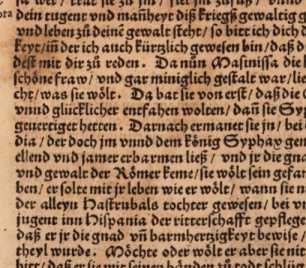 dein tugent vnd mañheyt diß kriegs gewaltig e
vnd leben zů deinē gewalt steht / so bitt ich dich d
keyt / iñ der ich auch kürtzlich gewesen bin / daß d
dest mit dir zů reden. Da nůn Masinissa die k
schöne fraw / vnd gar miniglich gestalt war / lie
cht / was sie wölt. Da bat sie von erst / daß die G
vnnd glücklicher entfahen wolten / dañ sie Syp
geuertiget hetten. Darnach ermanet sie jn / bei
dia / der doch jm vnnd dem König Syphax gem
ellend vnd jamer erbarmen ließ / vnd jr die gnad
vnd gewalt der Römer keme / sie wölt sein gefan
ben / er solte mit jr leben wie er wölt / wann sie n
der alleyn Hastrubals tochter gewesen / bei vn
jugent inn Hispania der ritterschafft gepflege
daß er jr die gnad vñ barmhertzigkeyt bewise /
theyl wurde. Möchte oder wölt er aber sie nit
bitt / daß er sie mit seinen händen zů todt schlüg